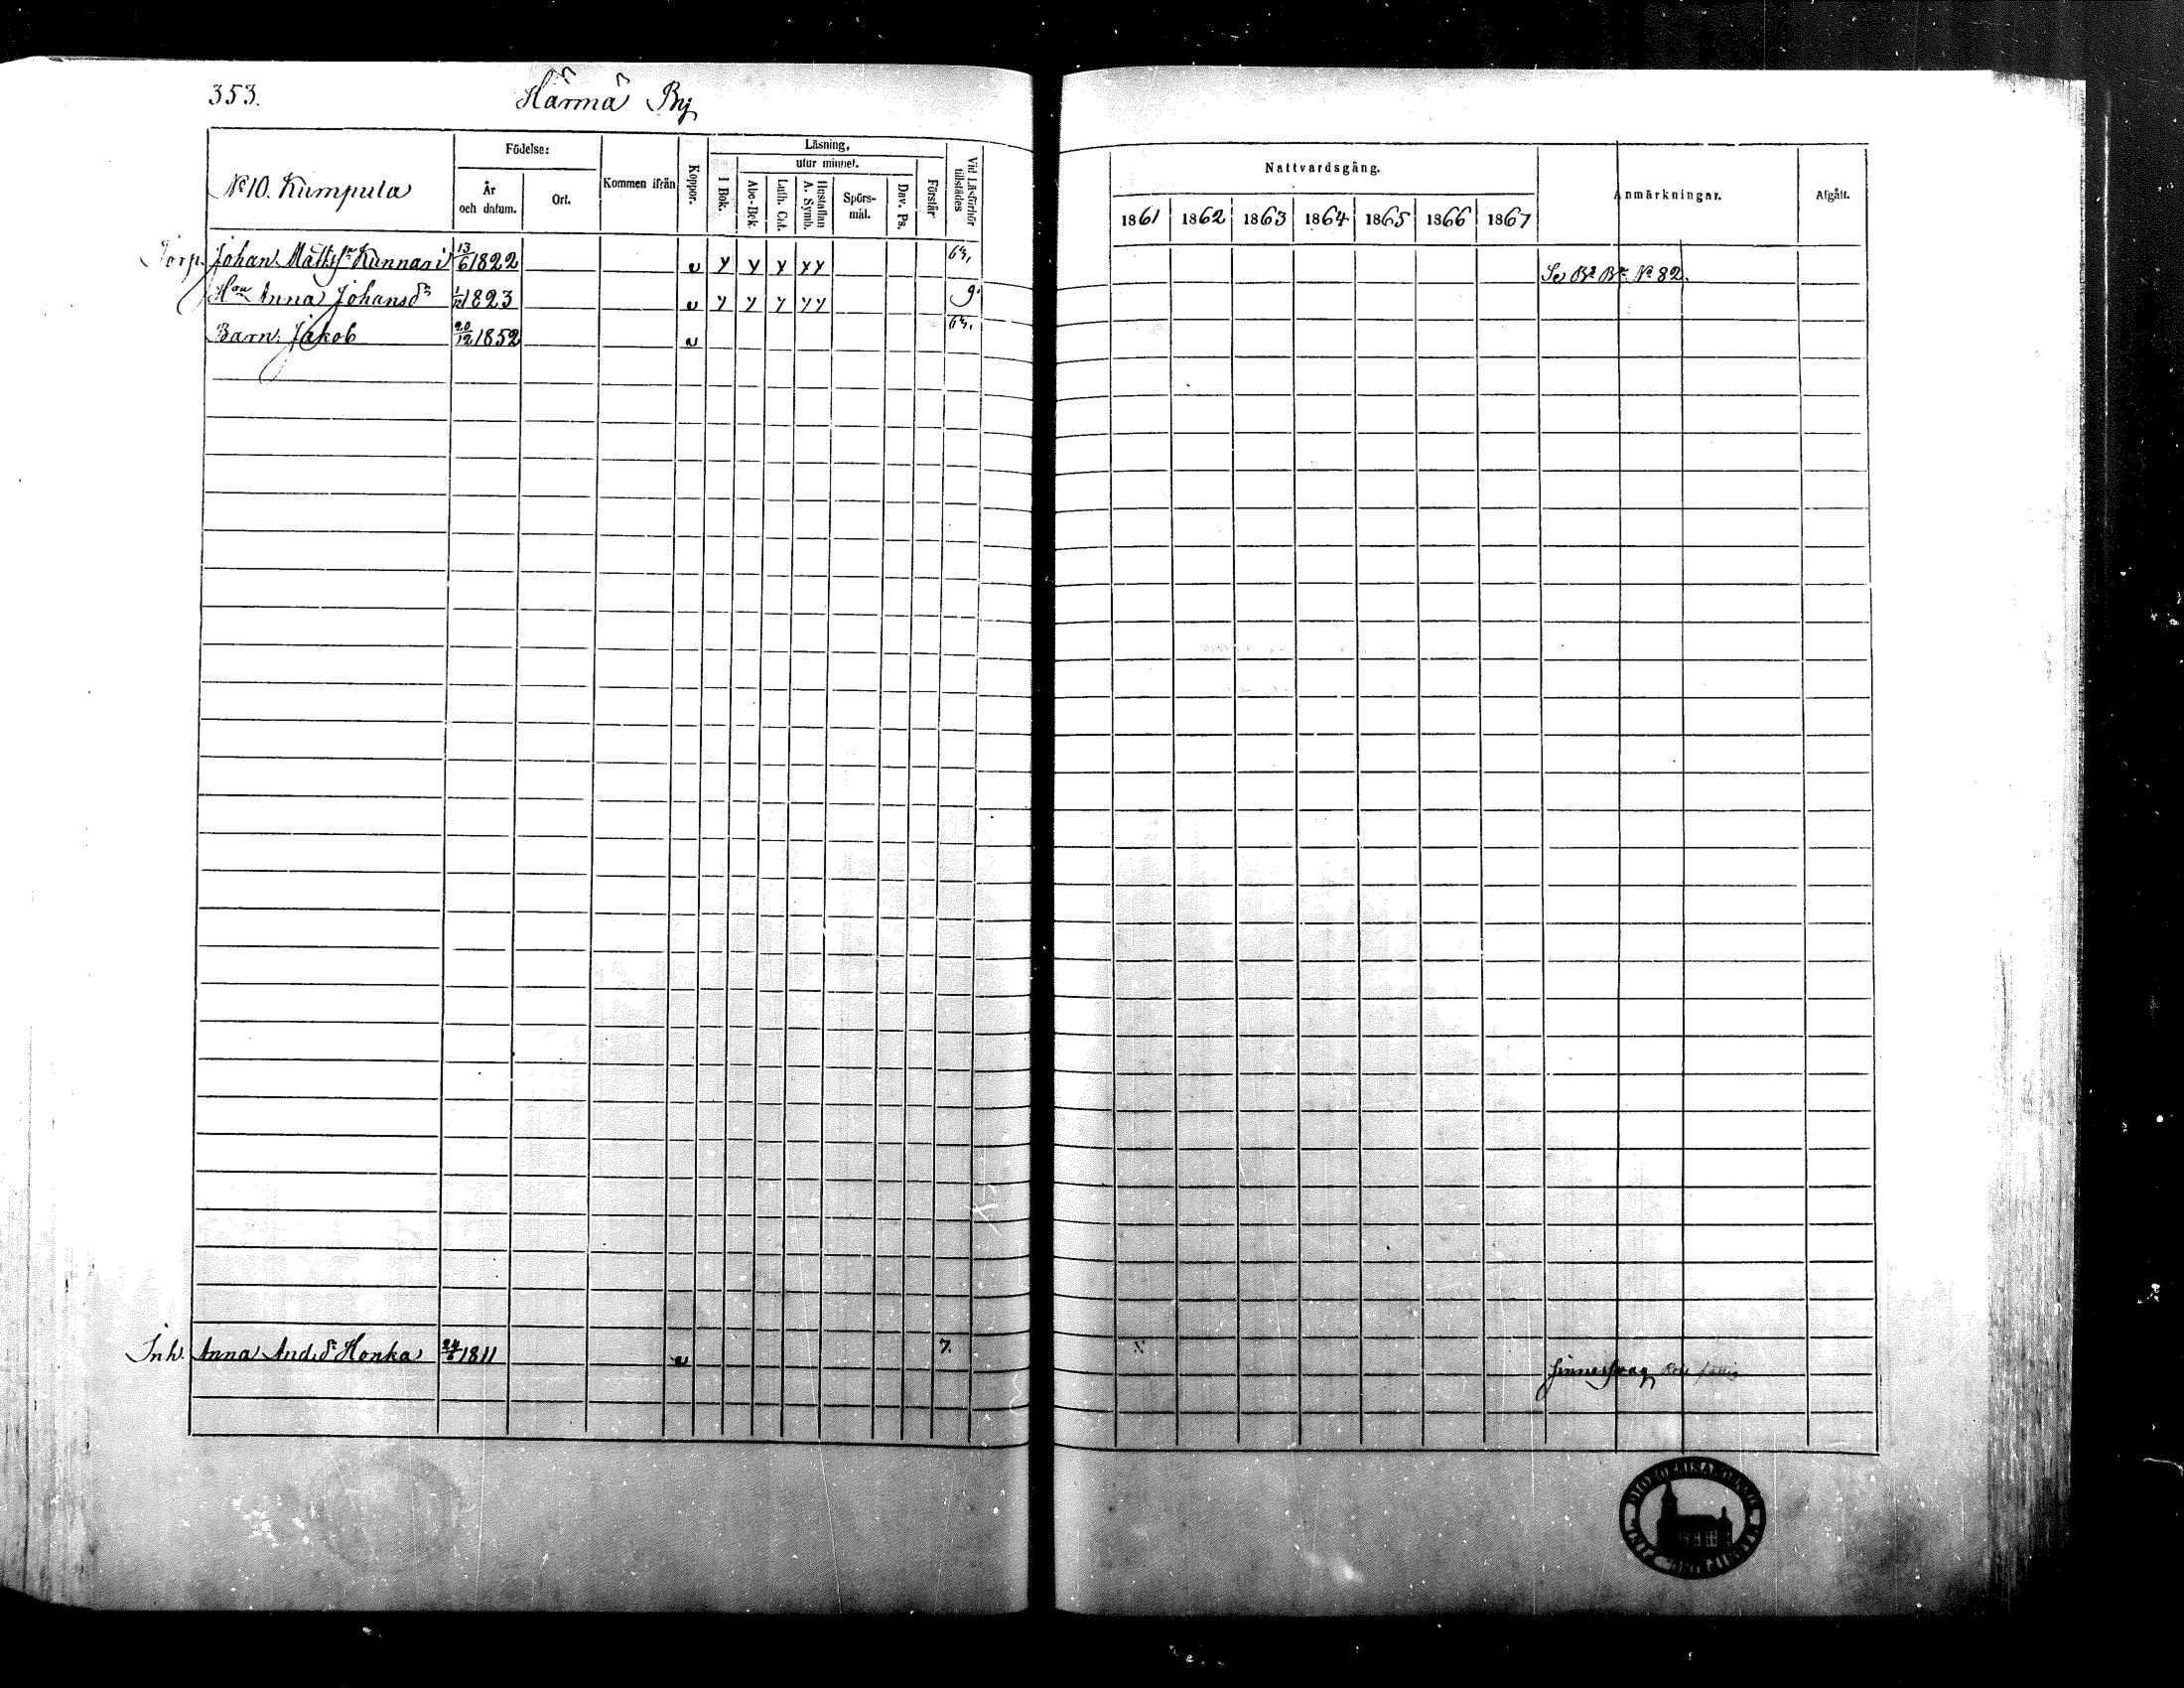 353. Härmä By
No 10. Kumpula
Födelse:
År och datum.
Ort.
Kommen ifrån
Koppor.
Läsning,
I Bok.
utur minnet.
Abc-Bok.
Luth. Cat.
Hustaflan A. Symb.
Spörs-mål.
Dav. Ps.
Förstår
Vid Läsförhör tillstädes
Nattvardsgång.
1861 1862 1863 1864 1865 1866 1867
Anmärkningar.
Afgått.
Torp. Johan Mattss Kunnari 13/6 1822 v y y y y y 63,
Se Bd Bn No 82.
Hon Anna Johansdr 1823 v y y y y y 9.
Barn: Jakob 20/12 1852 v 63,
Inh. Anna And.dr Honka 1811 v 7.
Sinnessvag